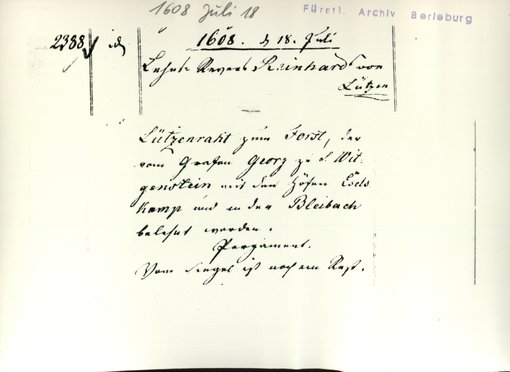 1608 Juli 18
Fürstl. Archiv Berleburg
2388
1608. d 18. Juli
Lehns Revers Reinhards von
Lützen
Lützenraht zum Forst, der
vom Grafen Georg zu S Wit-
genstein mit den Höfen Esels
kamp und in der Bleibach
belehnt worden.
Pergament.
Vom Siegel ist noch ein Rest.